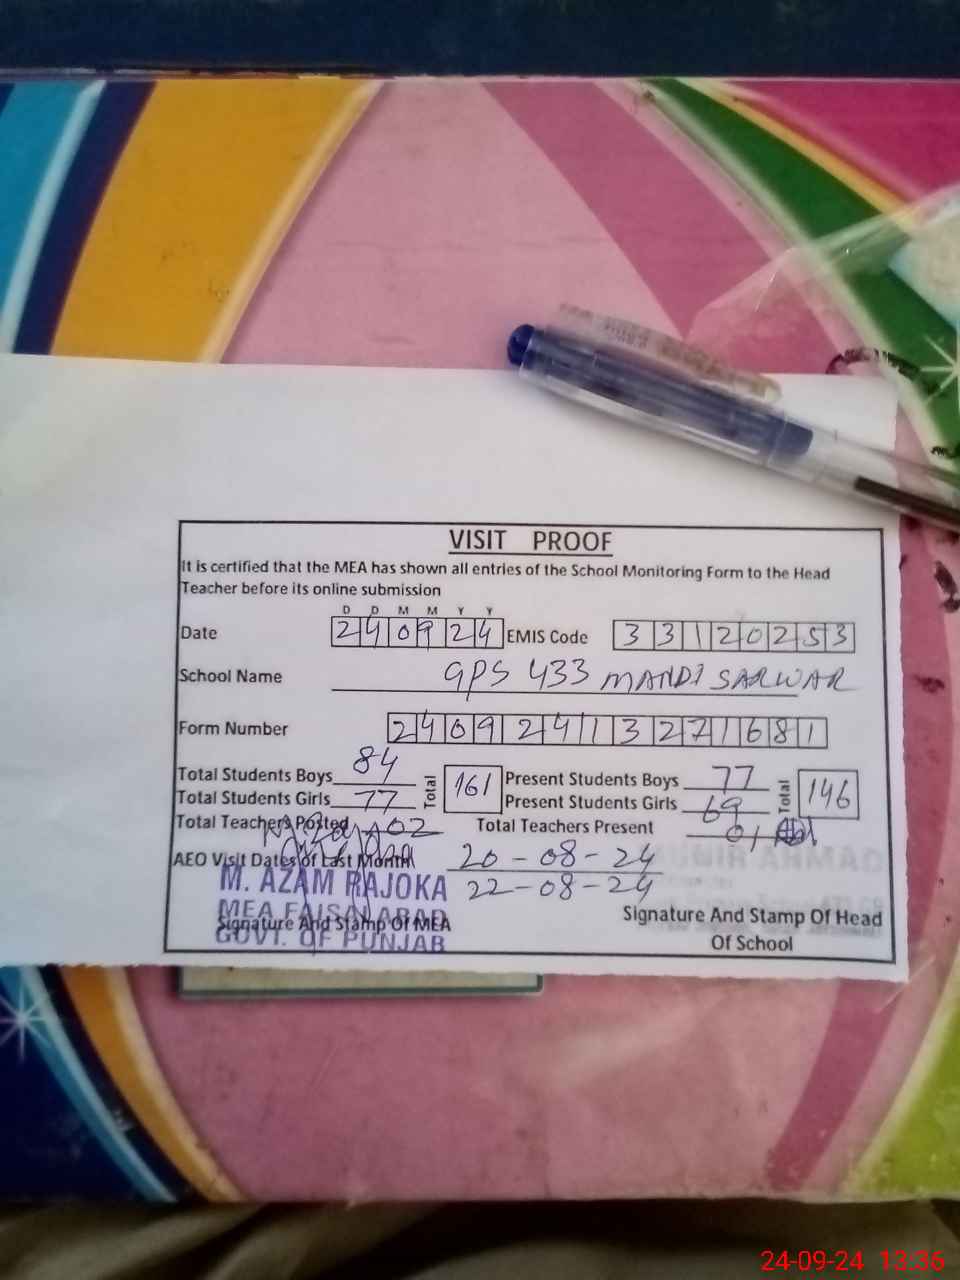 VISIT PROOF
It is certified that the MEA has shown all entries of the School Monitoring Form to the Head
Teacher before its online submission
D D M M Y Y
Date 240924 EMIS Code 33120253
School Name GPS 433 MANDI SARWAR
Form Number 24092413271681
Total Students Boys 84 Total 161 Present Students Boys 77 Total 146
Total Students Girls 77 Present Students Girls 69
Total Teachers Posted 02 Total Teachers Present 01
AEO Visit Dates of Last Month 20-08-24
22-08-24
M. AZAM RAJOKA
MEA FAISALABAD
GOVT. OF PUNJAB
Signature And Stamp Of MEA
Signature And Stamp Of Head
Of School
24-09-24 13:36